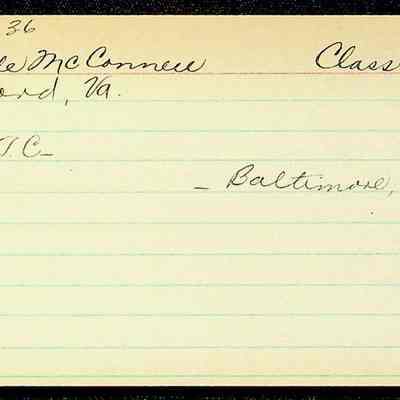 36
le McConnell Class
ord, Va.
T.C-
- Baltimore,